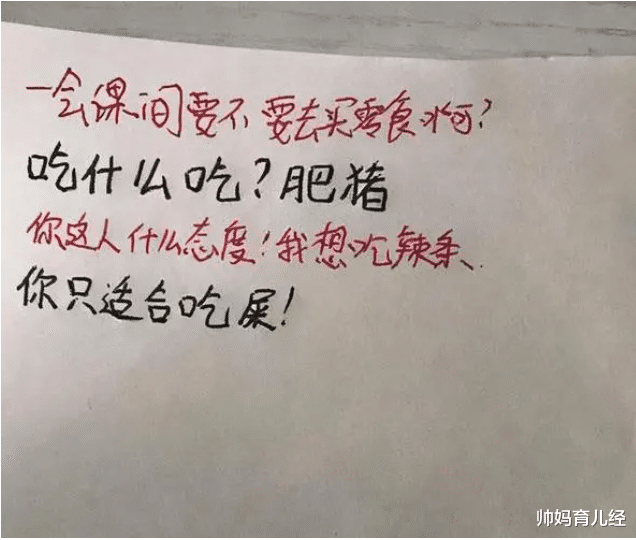 一会课间要不要去买零食啊?
吃什么吃?肥猪
你这人什么态度!我想吃辣条、
你只适合吃屎!
帅妈育儿经